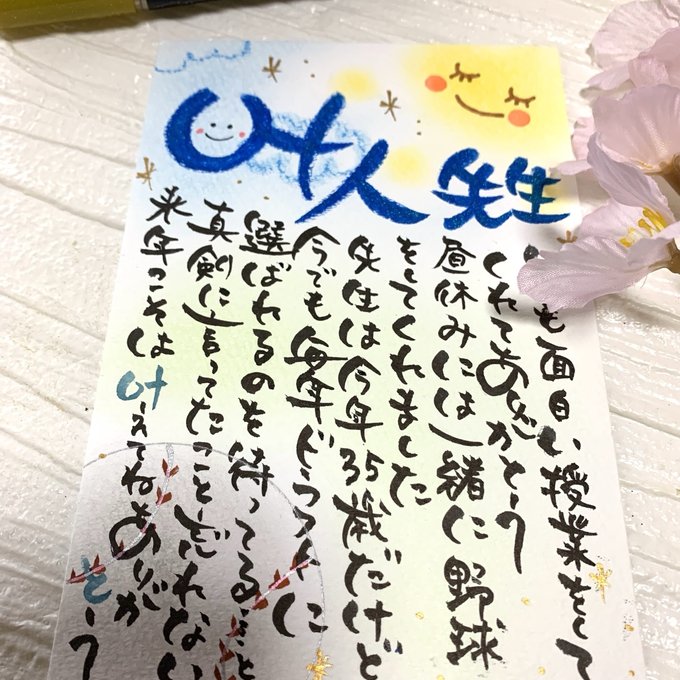 叶人先生
も面白い授業をして
くれてありがとう
昼休みには一緒に野球
をしてくれました
先生は今年35歳だけど
今でも毎年ドラフトに
選ばれるのを待ってる…と
真剣に言ってたこと忘れない
来年こそは叶えてねありが
とう